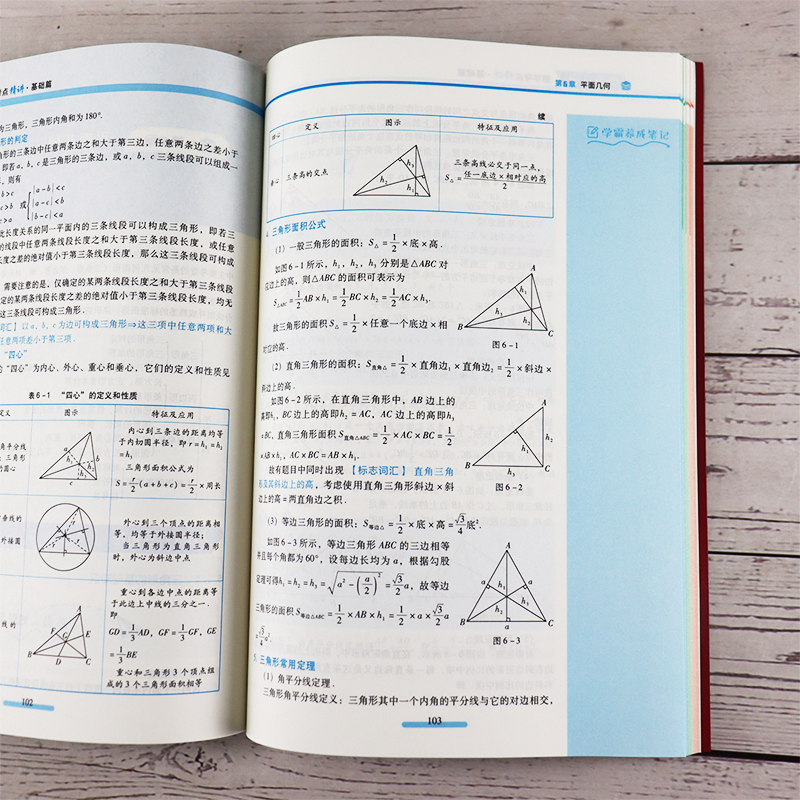 点精讲·基础篇
为三角形，三角形内角和为180°.
形的判定
角形的三条边中任意两条边之和大于第三边，任意两条边之差小于
即若a，b，c是三角形的三条边，或a，b，c三条线段可以组成一
，则有
b>c
|a-b|<c
c>b 或 |a-c|<b
c>a
|b-c|<a
此长度关系的同一平面内的三条线段可以构成三角形，即若三
的线段中任意两条线段长度之和大于第三条线段长度，或任意
长度之差的绝对值小于第三条线段长度，那么这三条线段可构成
需要注意的是，仅确定的某两条线段长度之和大于第三条线段
定的某两条线段长度之差的绝对值小于第三条线段长度，均无
这三条线段可构成三角形.
词汇】以a，b，c为边可构成三角形⇒这三项中任意两项和大
任意两项差小于第三项.
“四心”
的“四心”为内心、外心、重心和垂心，它们的定义和性质见
表6-1 “四心”的定义和性质
定义 图示 特征及应用
角平分线
；三角形
的圆心
内心到三条边的距离均等
于内切圆半径，即r=h₁=h₂
=h₃
三角形面积公式为
S=r/2(a+b+c)=r/2×周长
垂线的
外接圆
外心到三个顶点的距离相
等，均等于外接圆半径；
当三角形为直角三角形
时，外心为斜边中点
线的
重心到各边中点的距离等
于此边上中线的三分之一.
即
GD=1/3AD，GF=1/3GF，GE
=1/3BE
重心和三角形3个顶点组
成的3个三角形面积相等
A
F
G
E
B
D
C
102
第6章 平面几何
续
定义 图示 特征及应用
垂心 三条高的交点
三条高线必交于同一点，
S△=任一底边×相对应的高/2
h₃
h₂
h₁
学霸养成笔记
4. 三角形面积公式
（1）一般三角形的面积：S△=1/2×底×高.
如图6-1所示，h₁，h₂，h₃分别是△ABC对
应边上的高，则△ABC的面积可表示为
S△ABC=1/2AB×h₁=1/2BC×h₂=1/2AC×h₃.
故三角形的面积S△=1/2×任意一个底边×相
对应的高.
A
h₁
h₃
h₂
B
C
图6-1
（2）直角三角形的面积：S直角△=1/2×直角边₁×直角边₂=1/2×斜边×
斜边上的高.
如图6-2所示，在直角三角形中，AB边上的
高即h₁，BC边上的高即h₂=AC，AC边上的高即h₃
=BC，直角三角形面积S直角△ABC=1/2×AC×BC=1/2
×AB×h₁，AC×BC=AB×h₁.
故有题目中同时出现【标志词汇】直角三角
形及其斜边上的高，考虑使用直角三角形斜边×斜
边上的高=两直角边之积.
A
h₁
h₂
B
h₃
C
图6-2
（3）等边三角形的面积：S等边△=1/2×底×高=√3/4底².
如图6-3所示，等边三角形ABC的三边相等
并且每个角都为60°，设每边长均为a，根据勾股
定理可得h₁=h₂=h₃=√(a²-(a/2)²)=√3/2a，故等边
三角形的面积S等边△ABC=1/2×AB×h₁=1/2×a×√3/2a
=√3/4a².
A
a
h₁
a
h₃
h₂
B
a
C
图6-3
5. 三角形常用定理
（1）角平分线定理.
三角形角平分线定义：三角形其中一个内角的平分线与它的对边相交，
103